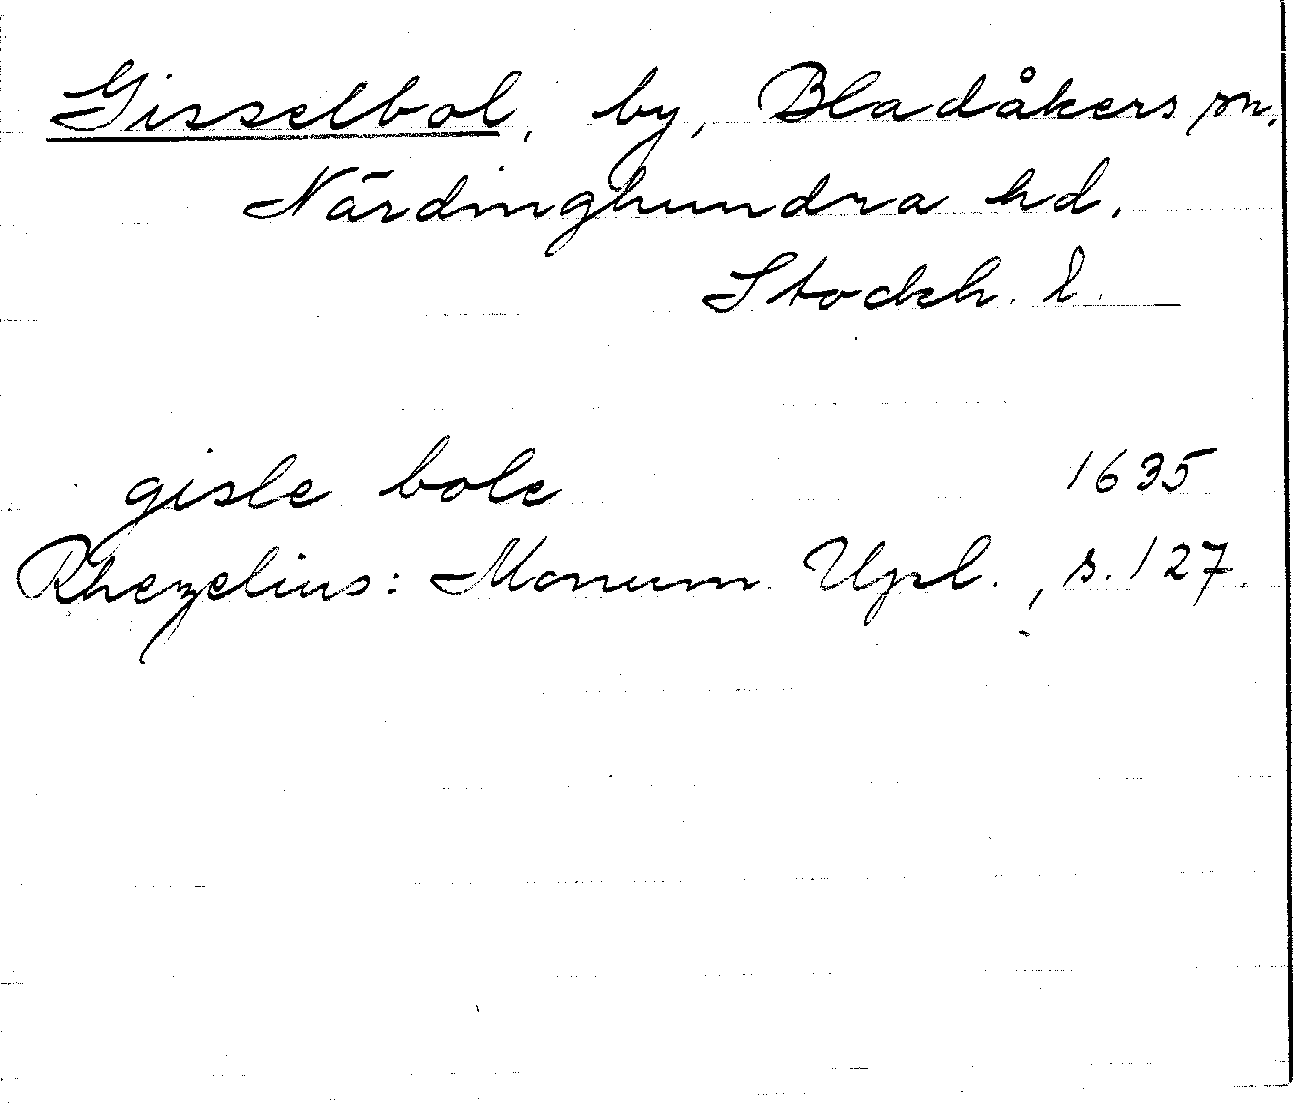 Gisselbol, by, Bladåkers sn,
Närdinghundra hd,
Stockh. l.
gisle bole 1635
Rhezelius: Monum. Upl., s. 127.